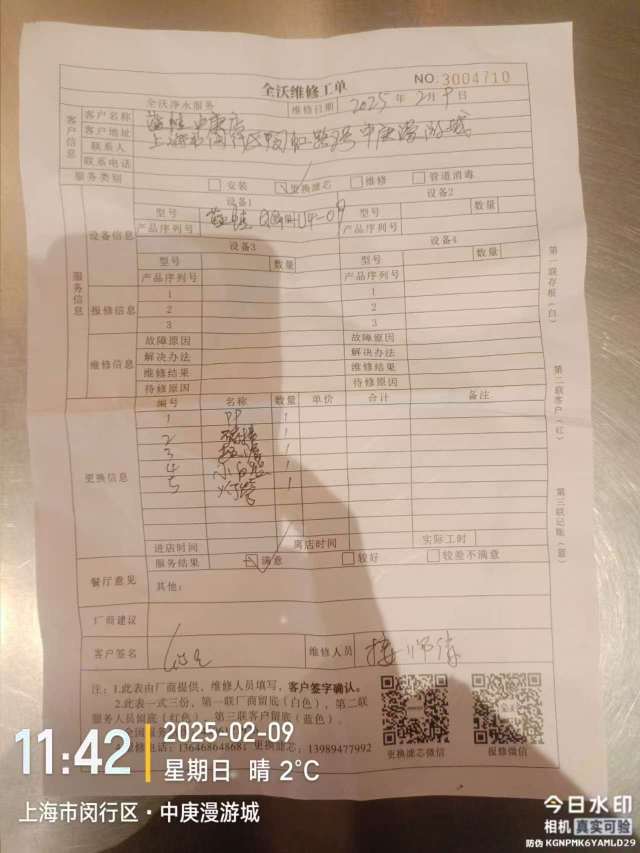 全沃维修工单
NO.3004710
全沃净水服务
维修日期 2025年2月9日
客户信息
客户名称
客户地址 上海市闵行区 中庚漫游城
联系人
联系电话
服务类别 安装 更换滤芯 维修 管道消毒
服务信息
设备信息
设备1 设备2
型号 数量 型号 数量
产品序列号 产品序列号
设备3 设备4
型号 数量 型号 数量
产品序列号 产品序列号
报修信息
1 1
2 2
3 3
维修信息
故障原因 故障原因
解决办法 解决办法
维修结果 维修结果
待修原因 待修原因
更换信息
编号 名称 数量 单价 合计 备注
1 PP 1
2 1
3 1
4 1
5 灯管 1
进店时间 离店时间 实际工时
服务结果 满意 较好 较差不满意
餐厅意见 其他:
厂商建议
客户签名 维修人员
注:1.此表由厂商提供,维修人员填写,客户签字确认。
2.此表一式三份,第一联厂商留底(白色),第二联
服务人员留底(红色),第三联客户留底(蓝色)。
全国服务
维修电话:13646864868;更换滤芯:13989477992
更换滤芯微信 报修微信
第一联存根(白)
第二联客户(红)
第三联记账(蓝)
11:42
2025-02-09
星期日 晴 2°C
上海市闵行区·中庚漫游城
今日水印
相机 真实可验
防伪 KGNPMK6YAMLD29